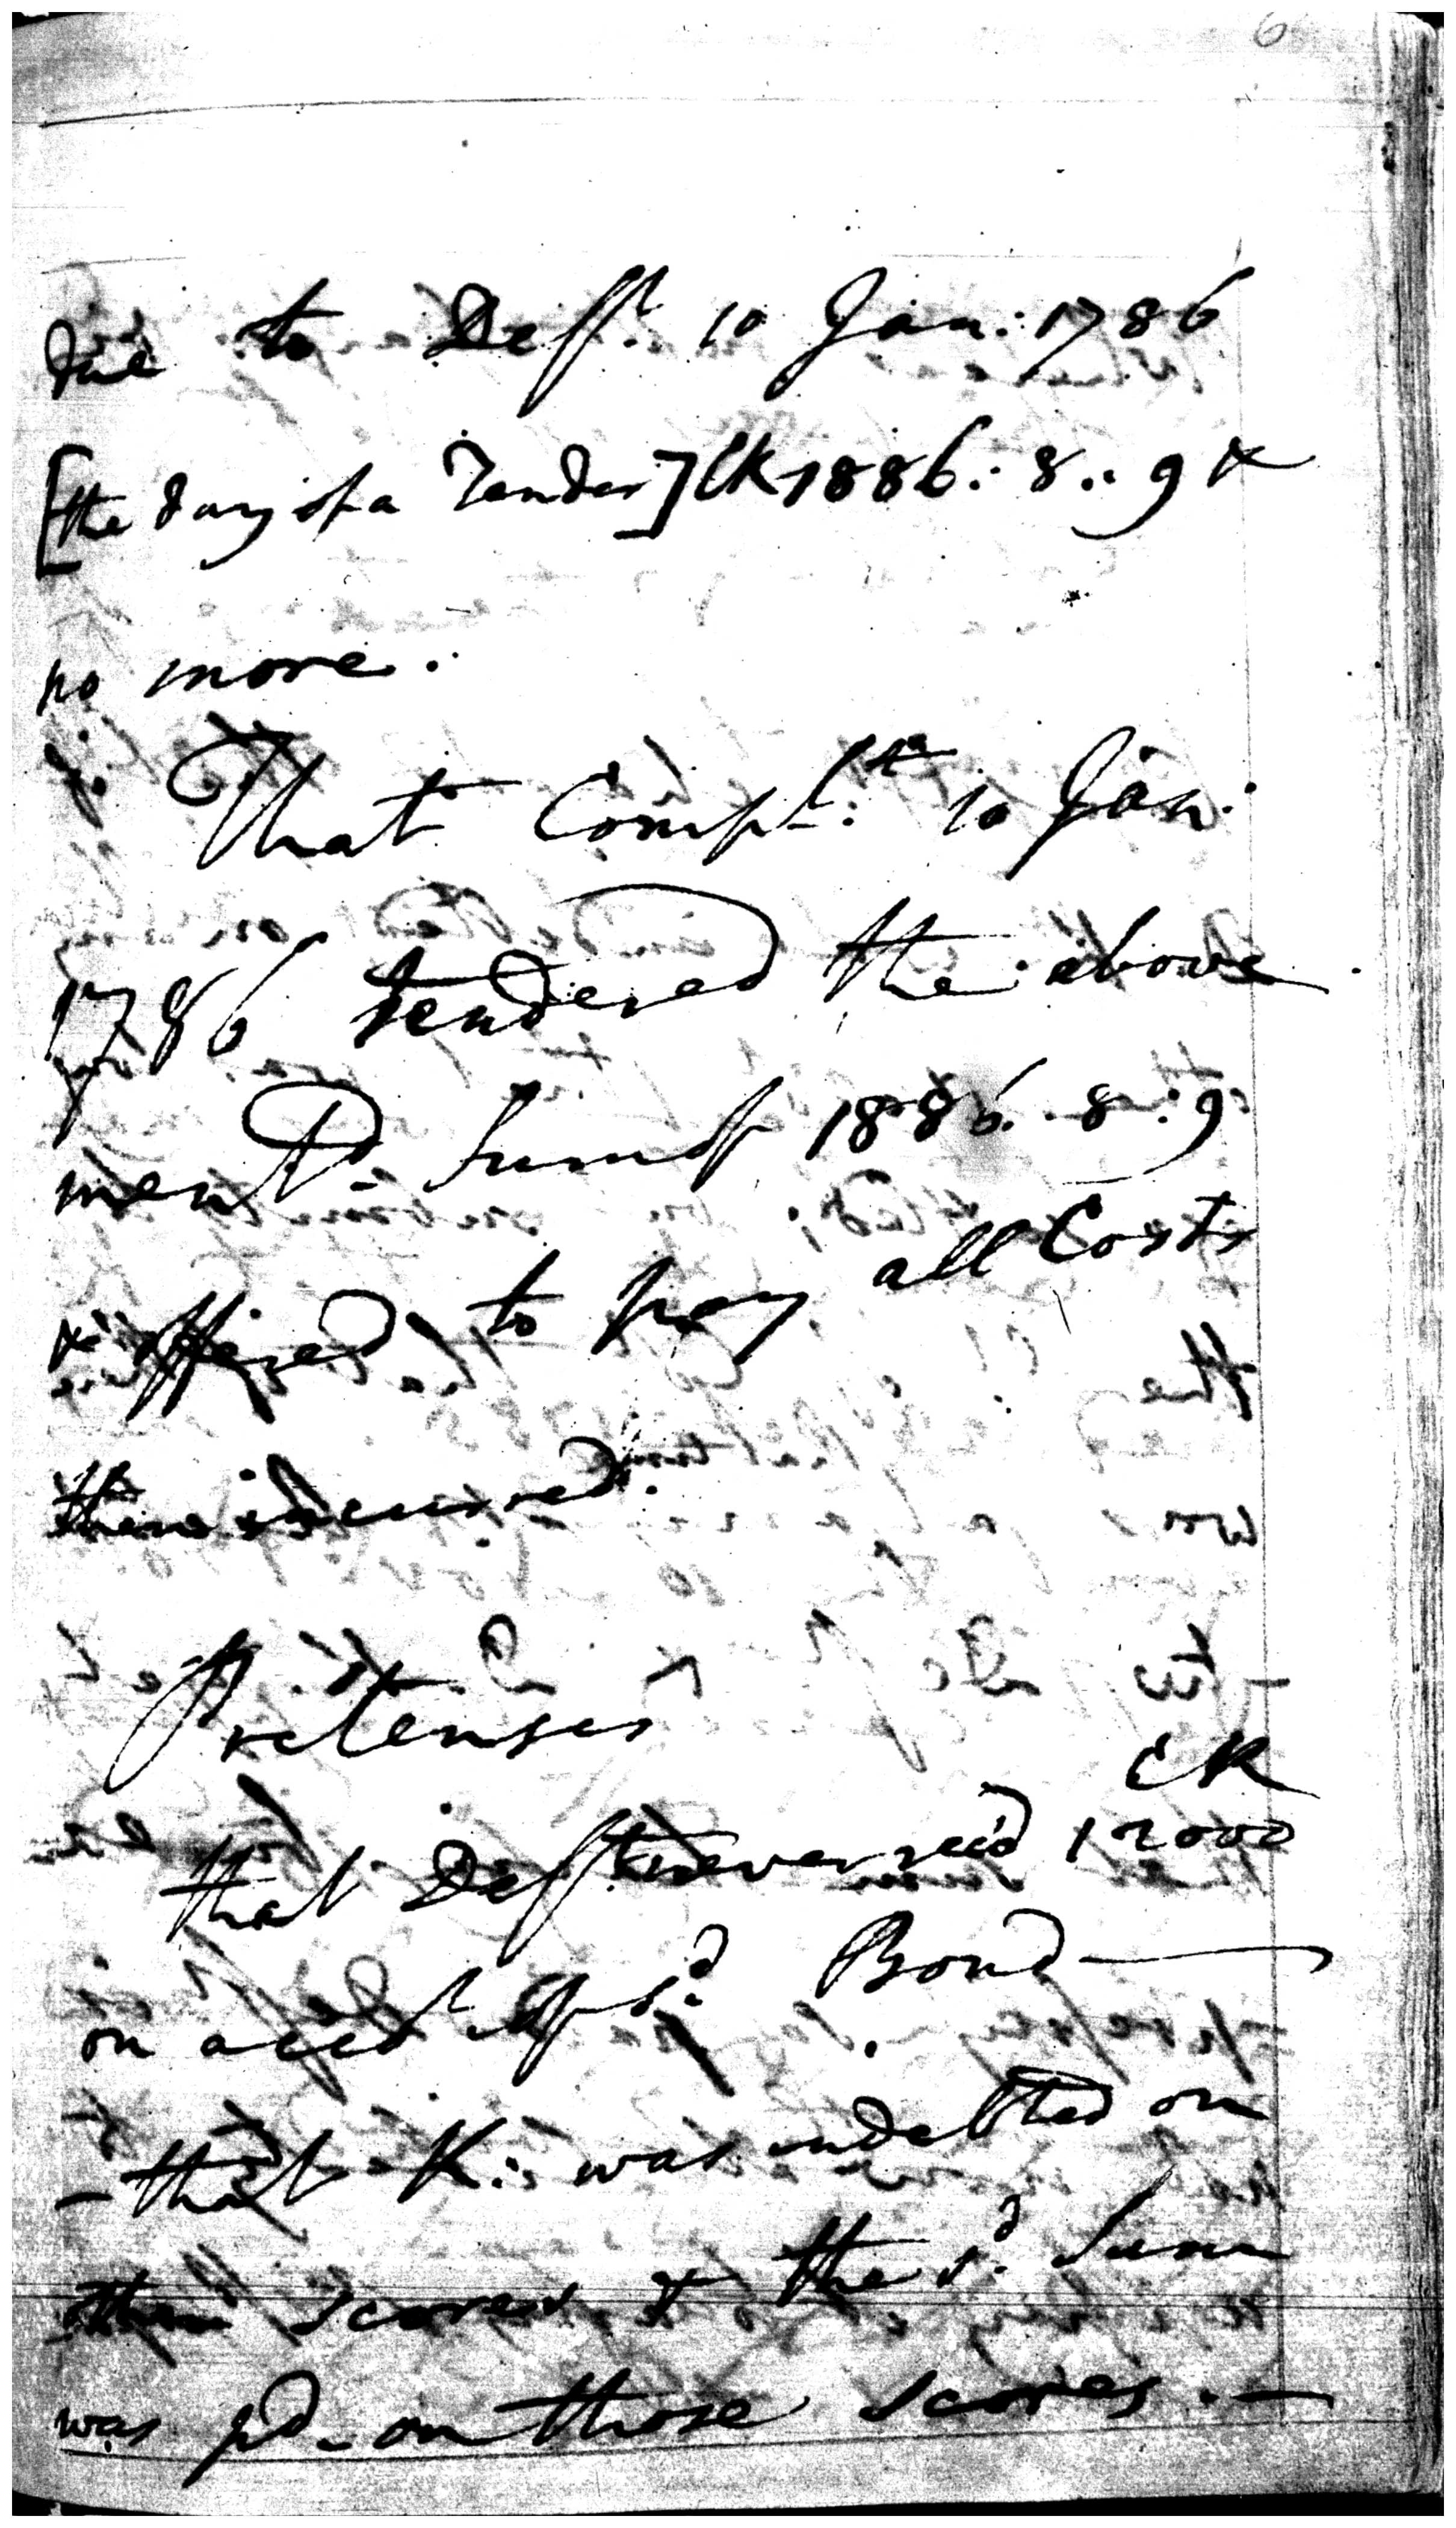 6
due to Deft. 10 Jan: 1786
[the day of a Tender] CR 1886: 8.. 9 &
no more.
That Complts. 10 Jan:
1786 tendered the above
mentd. Sum of 1886. 8: 9
& offered to pay all Costs
then incurred.
Pretenses
CR
that Deft. never rec'd 12000
on accot of sd. Bond —
– that K: was indebted on
other scores & the sd. Sum
was pd. on those scores. —